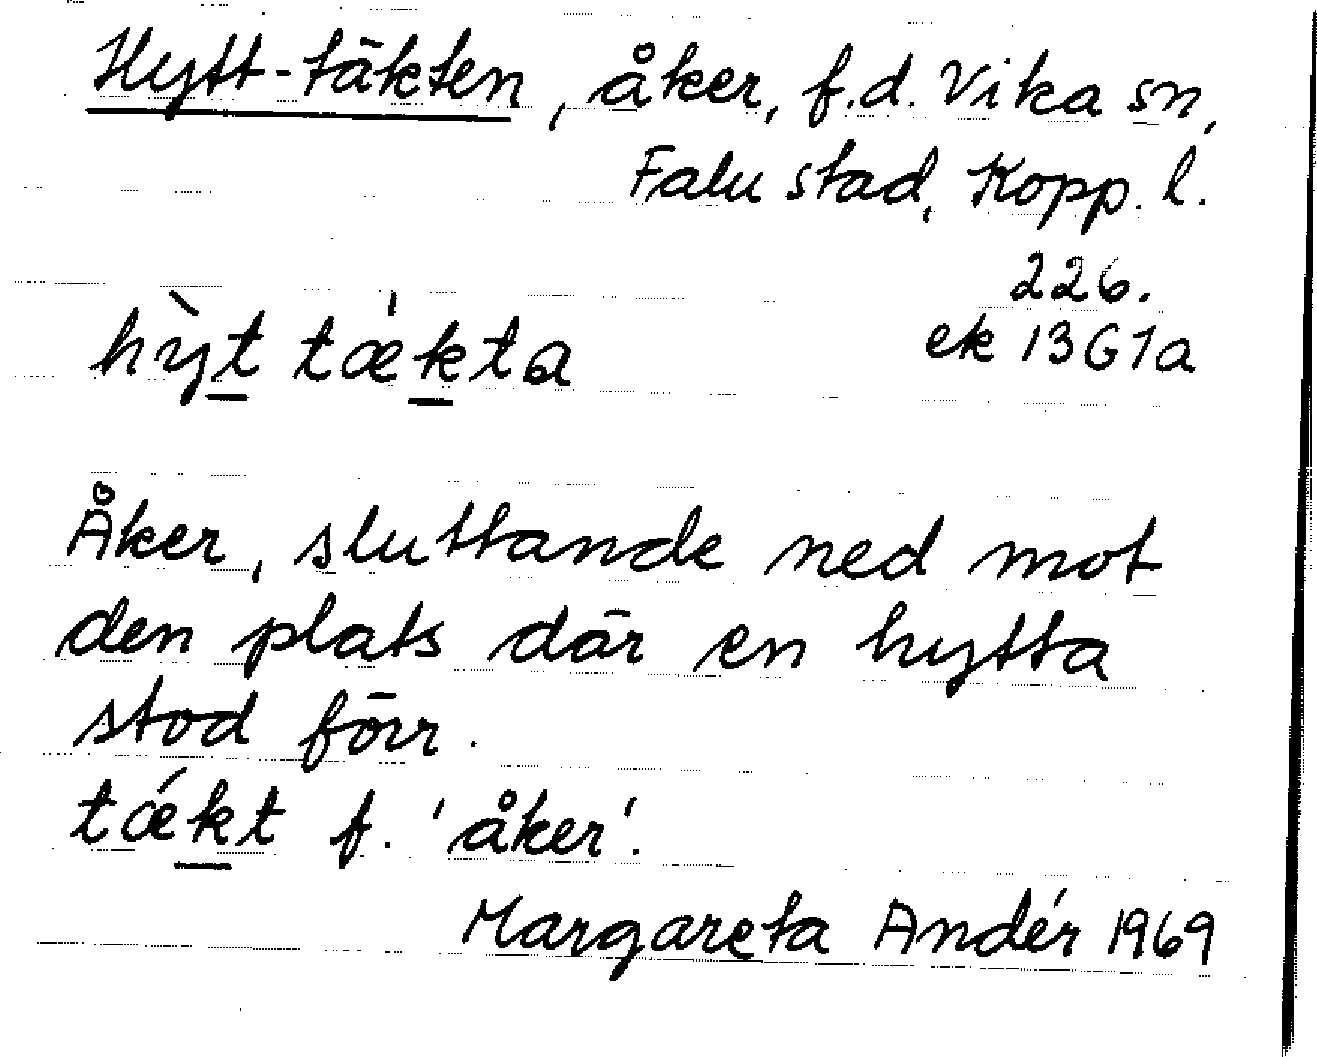 Hytt-täkten, åker, f.d. Vika sn,
Falu stad, Kopp. l.
226.
hỳt tǽkta
ek 13G1a
Åker, sluttande ned mot
den plats där en hytta
stod förr.
tǽkt f. 'åker'.
Margareta Andér 1969